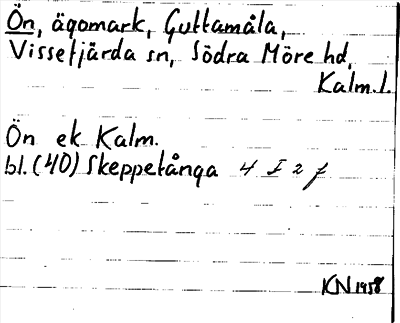 Ön, ägomark, Guttamåla,
Vissefjärda sn, Södra Möre hd,
Kalm.l.
Ön ek Kalm.
bl. (40) Skeppetånga 4 I 2 f
KN 1958